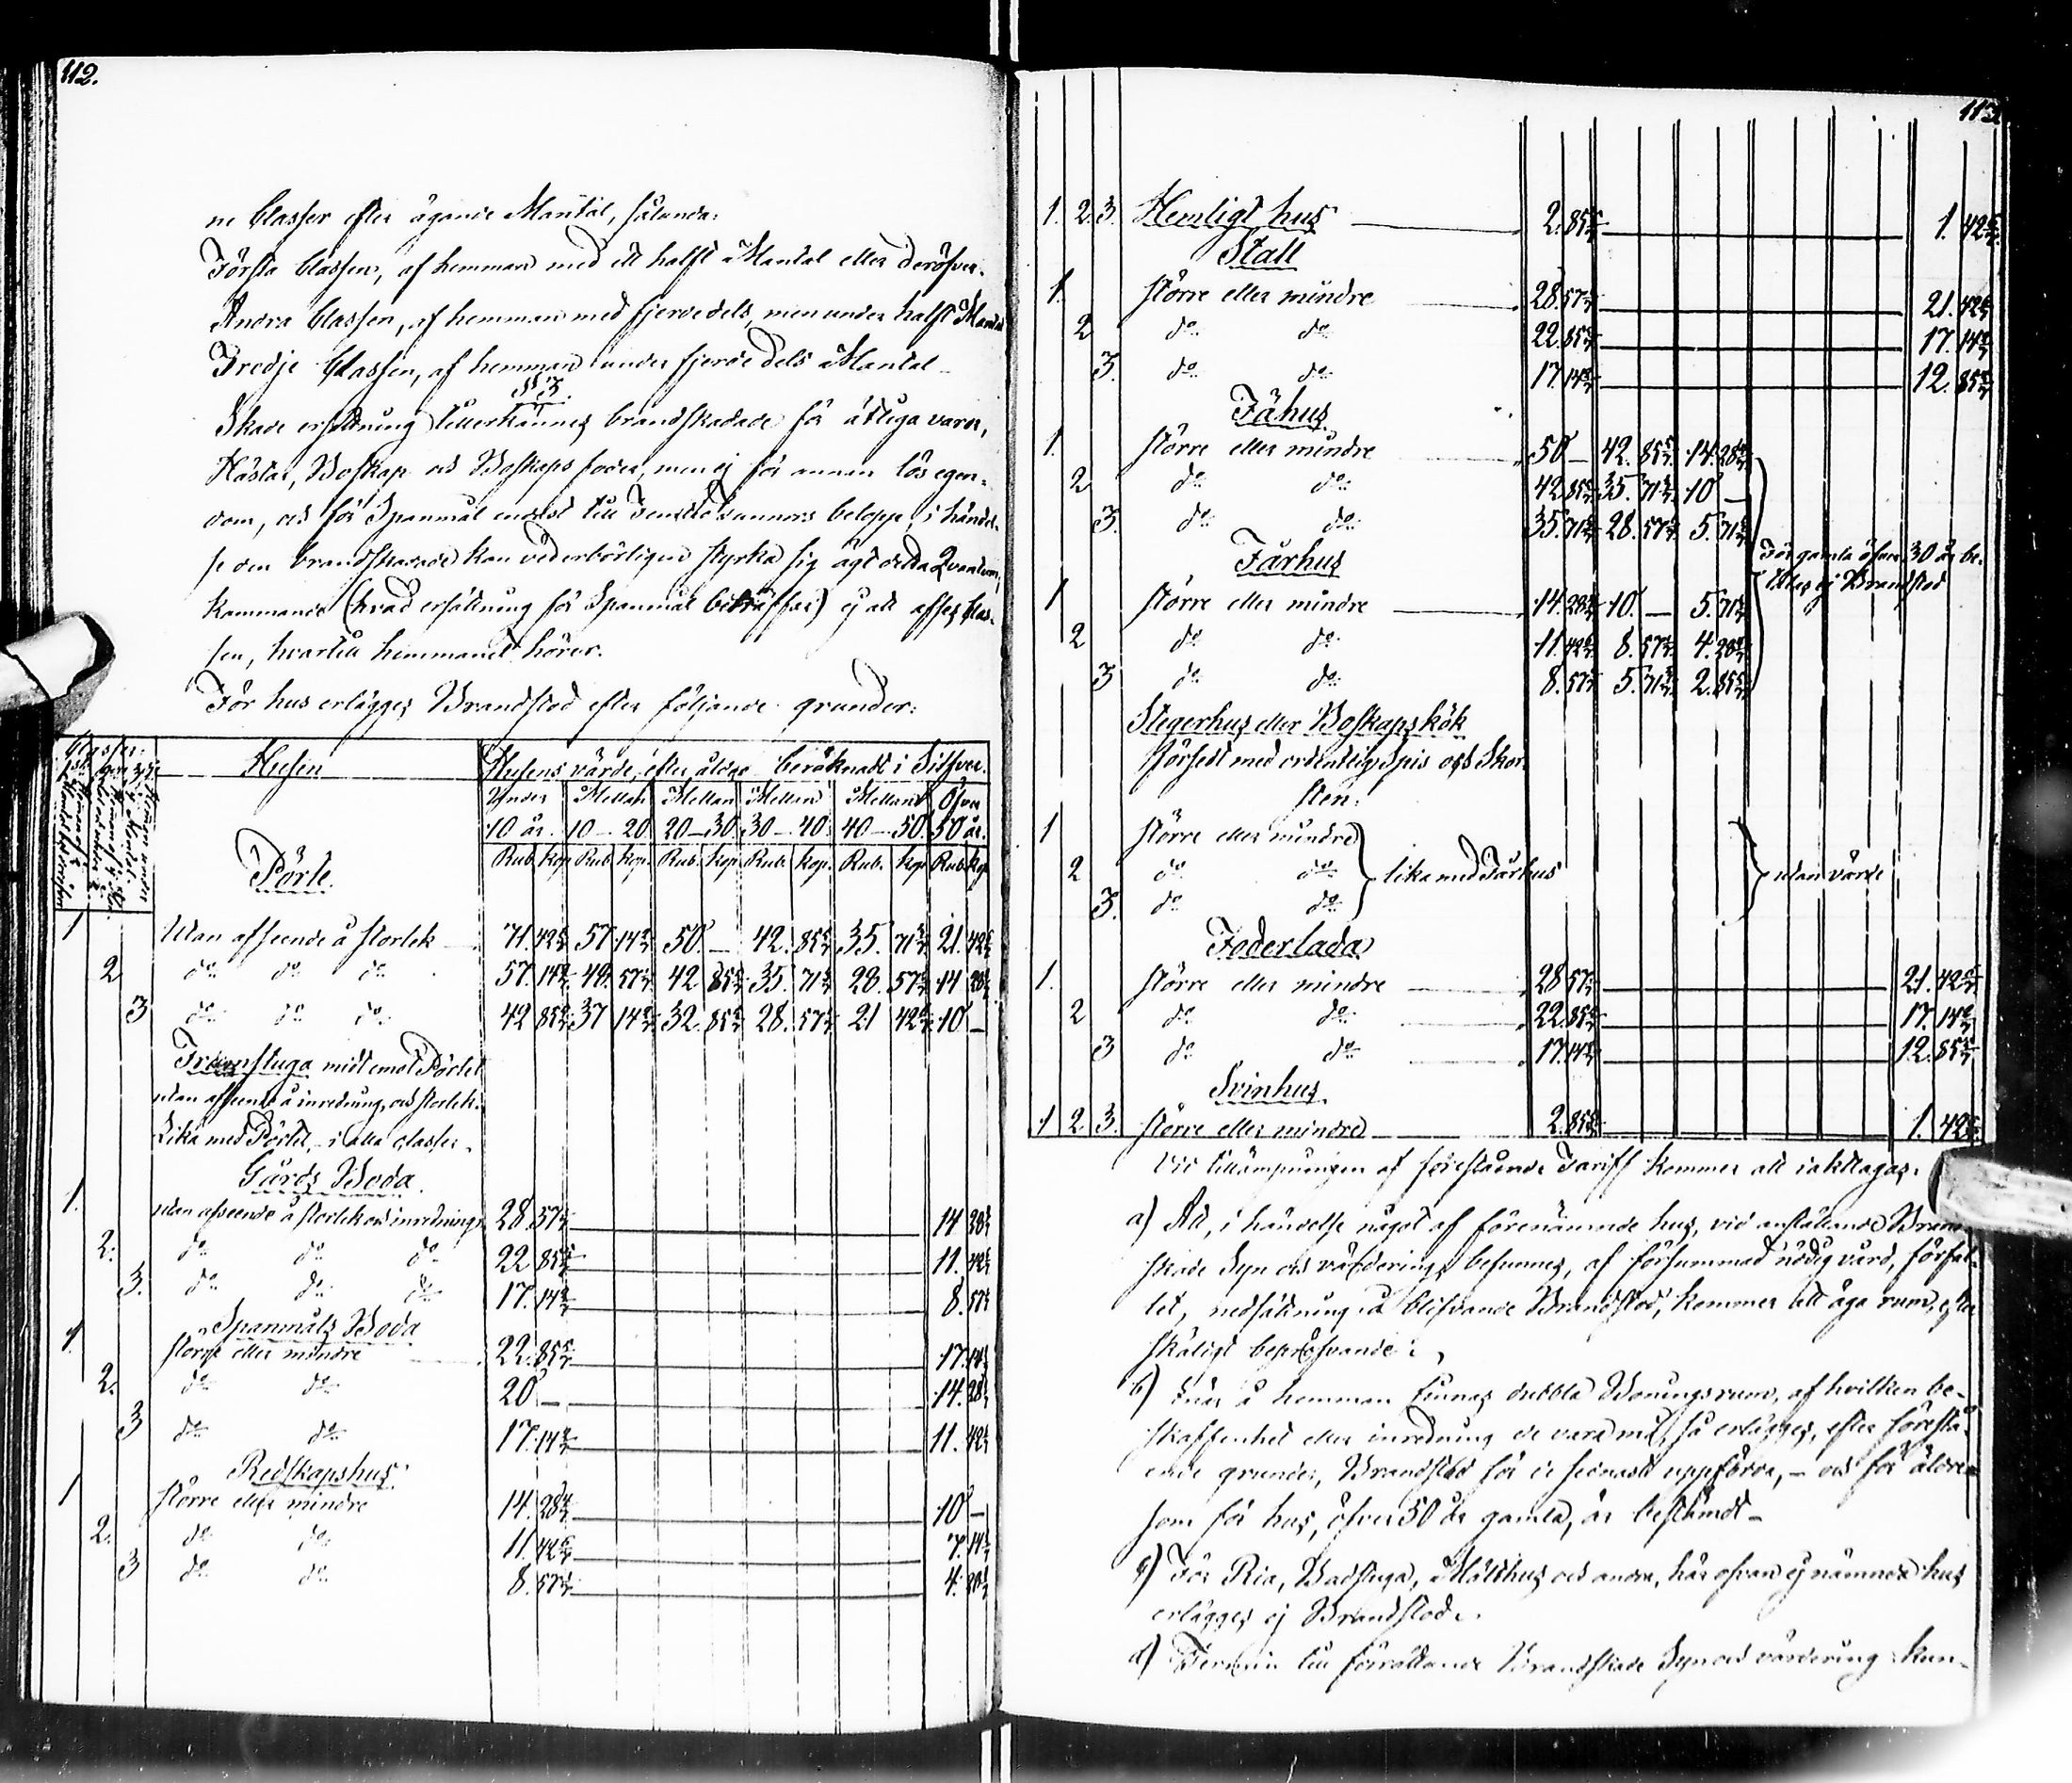 112.
ne Classer efter ägande Mantal, sålunda:
Första Classen, af hemman med ett halft Mantal eller deröfver.
Andra Classen, af hemman med fjerdedels, men under halft Mantal
Tredje Classen, af hemman under fjerdedels Mantal
§ 3.
Skade ersättning tillerkännes brandskadade för ätliga varor,
Hästar, Boskap och Boskaps foder, men ej för annan lös egen-
dom, och för Spanmål endast till Tunnors belopp, i händel-
se den brandskadade kan vederbörligen styrka sig ägt detta Qvantum,
kommande (hvad ersättning för Spanmål beträffar) ej att afses Clas-
sen, hvartill hemmanet hörer.
För hus erlägges Brandstod efter följande grunder:
Classer. Husen Husens värde, efter ålder beräknadt i Silfver.
Under Mellan Mellan Mellan Mellan Öfver
10 år. 10 — 20 20 — 30 30 — 40 40 — 50 50 år.
Rub. kop. Rub. kop. Rub. kop. Rub. kop. Rub. kop. Rub. kop.
Pörte.
1 Utan afseende å storlek 71. 42 6/7 57. 14 2/7 50. — 42. 85 5/7 35. 71 3/7 21. 42 6/7
2 do do do 57. 14 2/7 48. 57 1/7 42. 85 5/7 35. 71 3/7 28. 57 1/7 14. 28 4/7
3 do do do 42. 85 5/7 37. 14 2/7 32. 85 5/7 28. 57 1/7 21. 42 6/7 10. —
Framstuga midt emot Pörtet
utan afseende å inredning, och storlek.
Lika med Pörtet, i alla classer.
Gårds Boda.
1. utan afseende å storlek och inredning 28. 57 1/7 14. 28 4/7
2. do do do 22. 85 5/7 11. 42 6/7
3. do do do 17. 14 2/7 8. 57 1/7
Spanmåls Boda
1. större eller mindre 22. 85 5/7 17. 14 2/7
2. do do 20. — 14. 28 4/7
3 do do 17. 14 2/7 11. 42 6/7
Redskapshus.
1 större eller mindre 14. 28 4/7 10. —
2. do do 11. 42 6/7 7. 14 2/7
3 do do 8. 57 1/7 4. 28 4/7
113.
1. 2. 3. Hemligt hus 2. 85 5/7 1. 42 6/7
Stall
1. större eller mindre 28. 57 1/7 21. 42 6/7
2 do do 22. 85 5/7 17. 14 2/7
3. do do 17. 14 2/7 12. 85 5/7
Fähus.
1. större eller mindre 50. — 42. 85 5/7 14. 28 4/7
2 do do 42. 85 5/7 35. 71 3/7 10. —
3. do do 35. 71 3/7 28. 57 1/7 5. 71 3/7
För gamla öfver 30 år be-
talas ej Brandstod
Fårhus
1 större eller mindre 14. 28 4/7 10. — 5. 71 3/7
2 do do 11. 42 6/7 8. 57 1/7 4. 28 4/7
3 do do 8. 57 1/7 5. 71 3/7 2. 85 5/7
Stegerhus eller Boskapskök
försedt med ordentlig Spis och Skor-
sten:
1 större eller mindre
2 do do lika med Fårhus utan värde
3. do do
Foderlada
1. större eller mindre 28. 57 1/7 21. 42 6/7
2 do do 22. 85 5/7 17. 14 2/7
3 do do 17. 14 2/7 12. 85 5/7
Svinhus.
1 2 3. större eller mindre 2. 85 5/7 1. 42 6/7
Vid tillämpningen af förestående Tariff kommer att iakttagas:
a) Att, i händelse något af förenämnde hus, vid anställande Brand-
skade Syn och värdering, befinnes, af försummad nödig vård, förfal-
let, nedsättning i blifvande Brandstod, kommer att äga rum, efter
skäligt bepröfvande:
b) När å hemman finnas dubbla Boningsrum, af hvilken be-
skaffenhet eller inredning de vara må, så erlägges, efter förestå-
ende grunder, Brandstod för de sednast uppförde, — och för äldre
som för hus, öfver 50 år gamla, är bestämdt —
c) För Ria, Badstuga, Mälthus och andra, här ofvan ej nämnda hus
erlägges ej Brandstod.
d) Termin till förrättande Brandskade Syn och värdering kun-